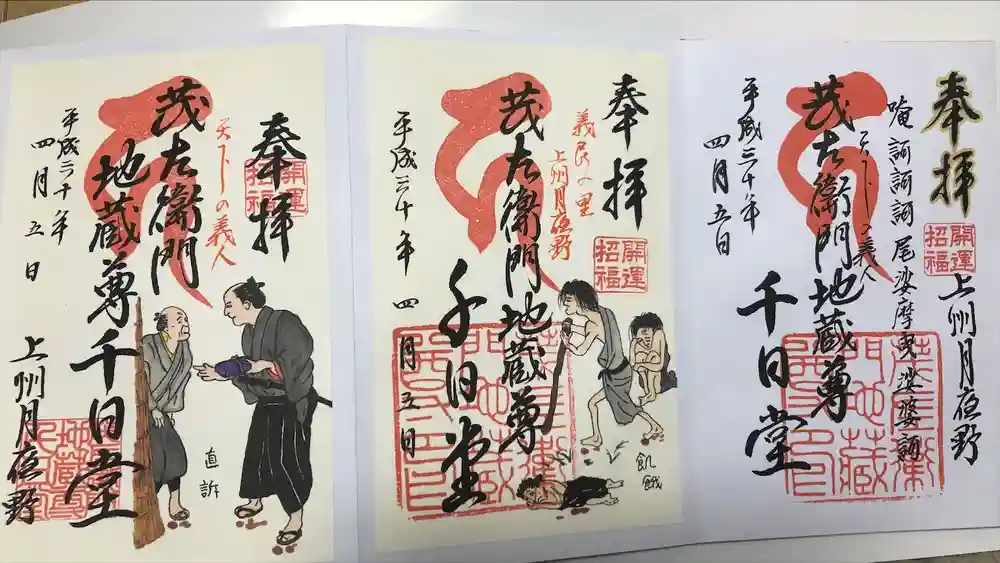 奉拝
開運
招福
天下の義人
茂左衛門
地蔵尊千日堂
平成三十年
四月五日
直訴
上州月夜野
奉拝
開運
招福
義民の里
上州月夜野
茂左衛門地蔵尊
千日堂
平成三十年
四月五日
飢餓
奉拝
開運
招福
上州月夜野
唵訶訶訶尾娑摩曳娑婆訶
天下の義人
茂左衛門地蔵尊
千日堂
平成三十年
四月五日